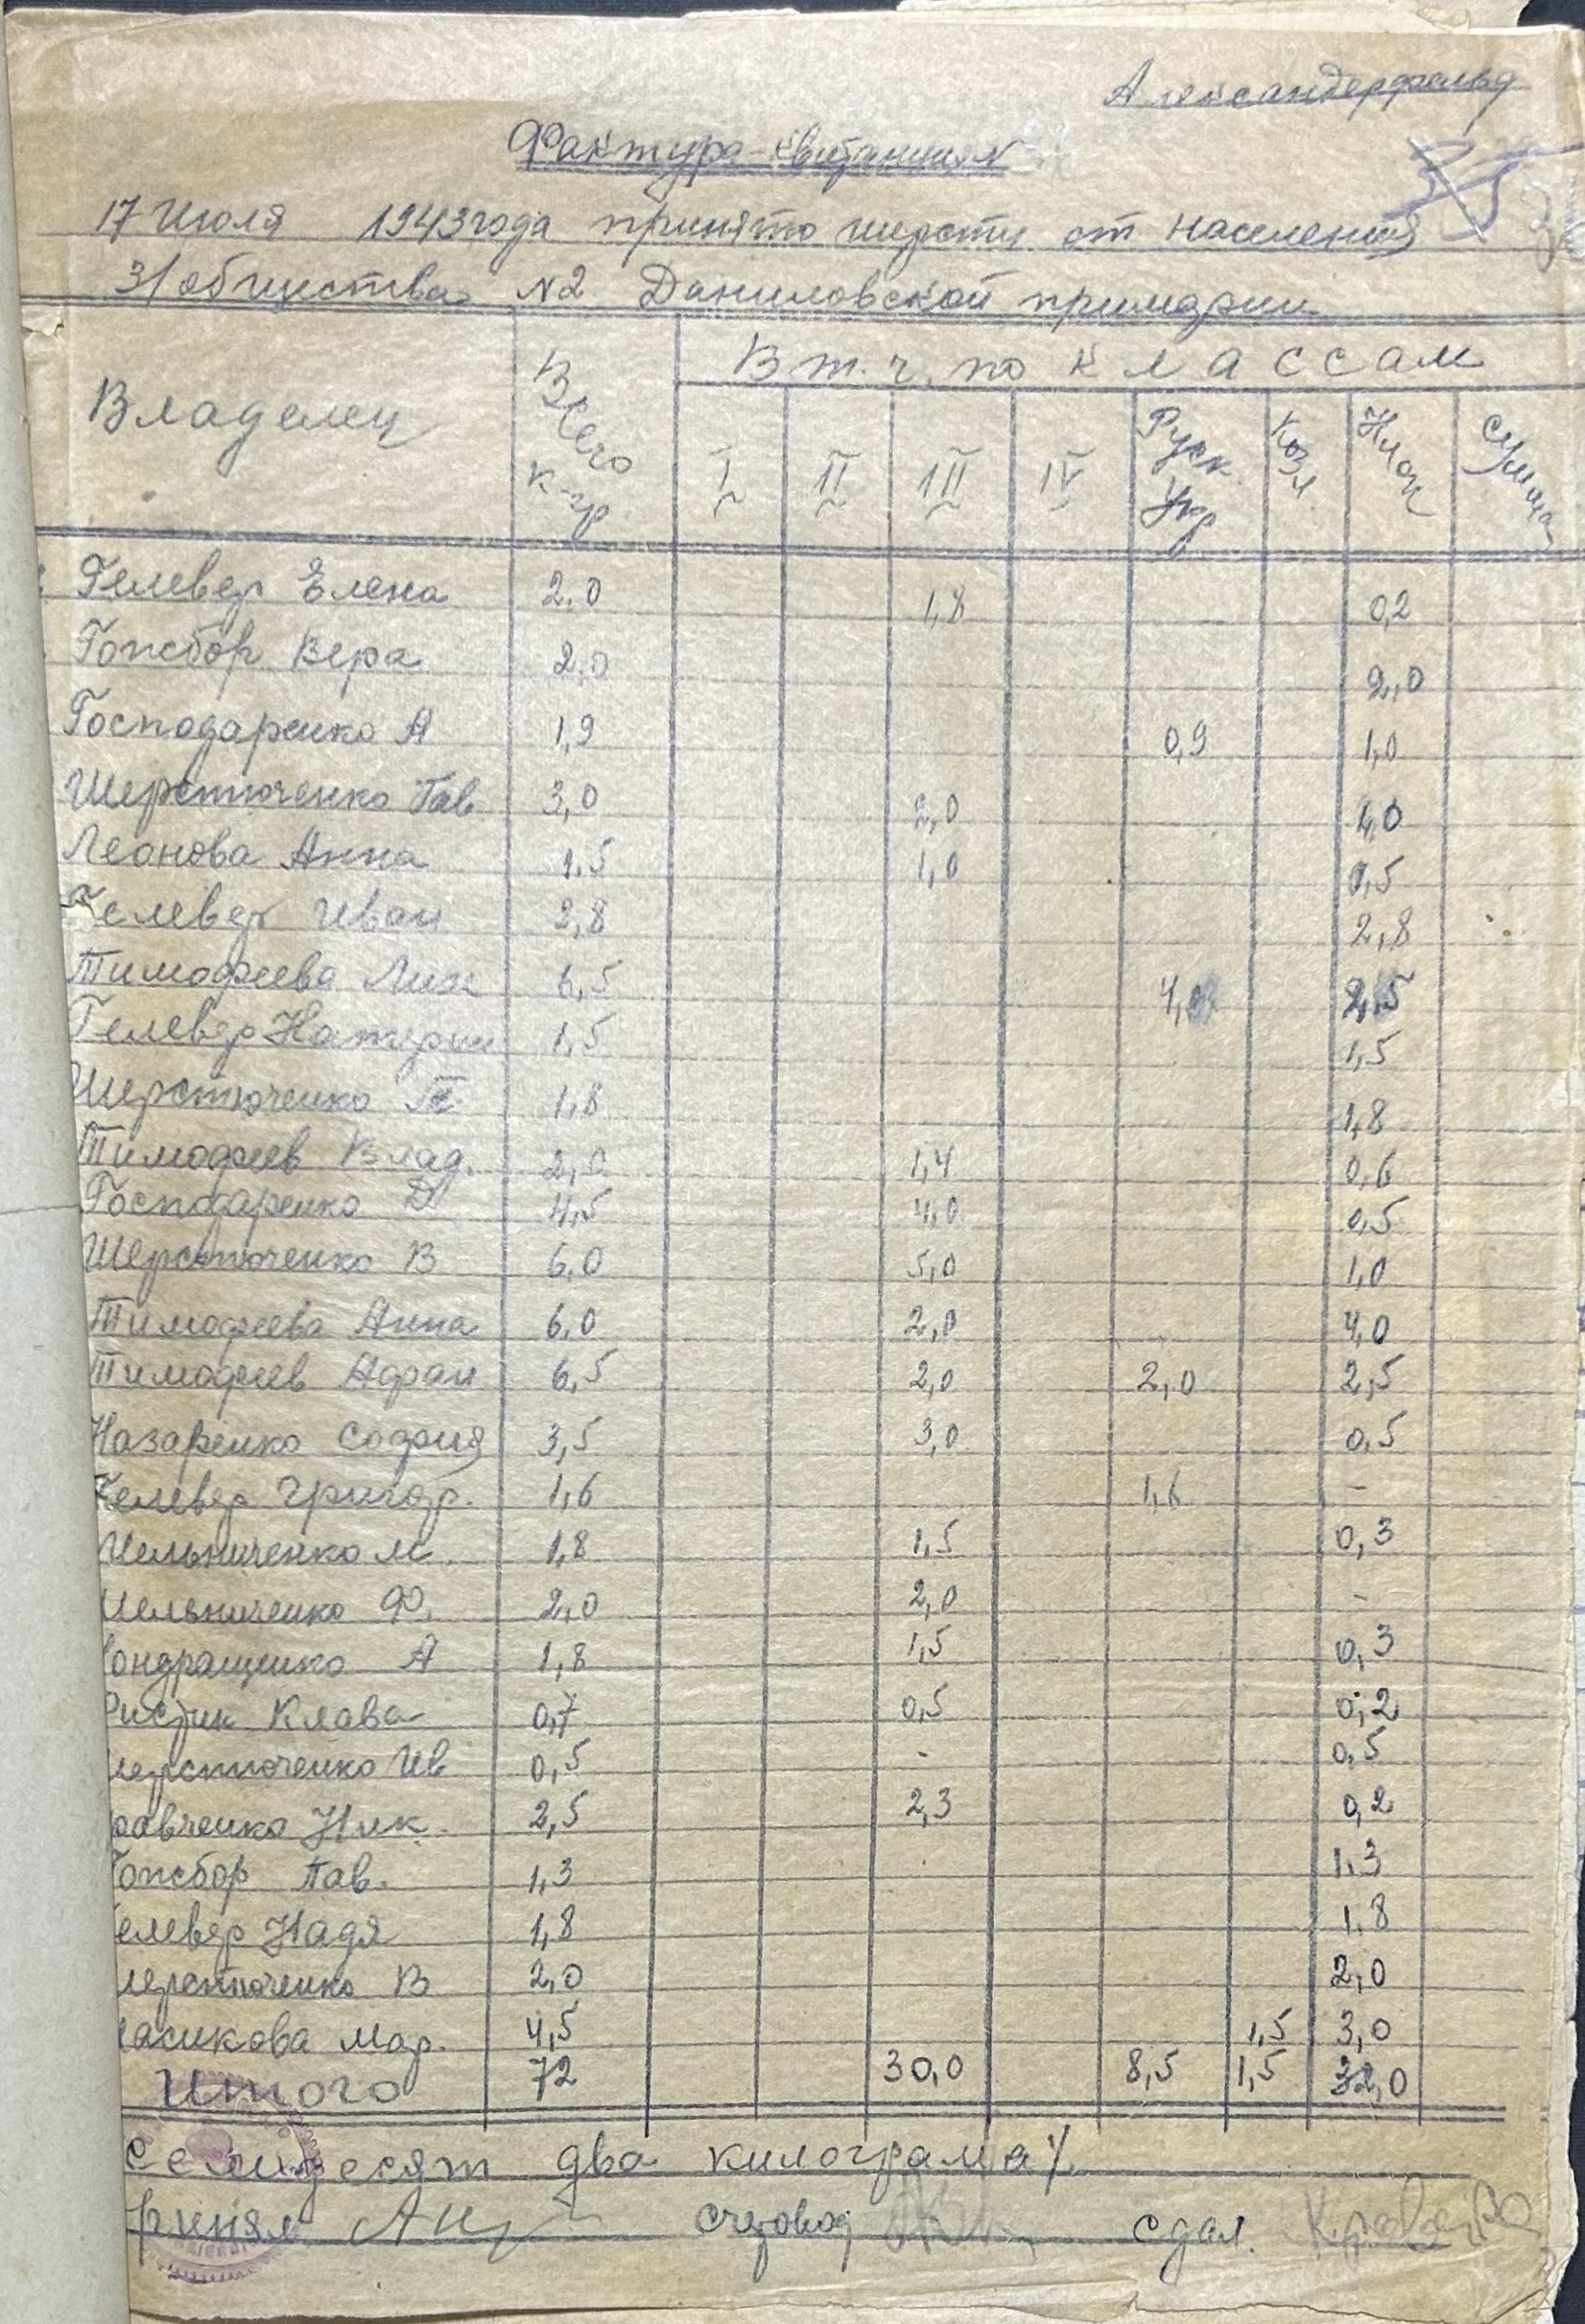 Александерфельд
Фактура-квитанция №
35
17 Июля 1943 года принято шерсти от населения
31 общества №2 Даниловской примарии
Владелец Всего к-гр В т. ч. по классам
I II III IV Руск Укр Козл Клок Сумма
Гелевер Елена 2.0 1,8 0,2
Гопсбор Вера 2,0 2,0
Господаренко А 1,9 0,9 1,0
Шерстюченко Гав 3,0 2,0 1,0
Леонова Анна 1,5 1,0 0,5
Гелевер Иван 2,8 2,8
Тимофеева Лик 6,5 4,0 2,5
Гелевер Катерин 1,5 1,5
Шерстюченко 1,8 1,8
Тимофеев Влад. 2,0 1,4 0,6
Господаренко Д 4,5 4,0 0,5
Шерстюченко В 6,0 5,0 1,0
Тимофеева Анна 6,0 2,0 4,0
Тимофеев Адран 6,5 2,0 2,0 2,5
Назаренко София 3,5 3,0 0,5
Гелевер Григор. 1,6 1,6 -
Мельниченко М. 1,8 1,5 0,3
Мельниченко Ф. 2,0 2,0 -
ондращенко А 1,8 1,5 0,3
Клава 0,7 0,5 0,2
ерстюченко Ив 0,5 - 0,5
равченко Ник. 2,5 2,3 0,2
опсбор Пав. 1,3 1.3
елевер Надя 1,8 1,8
ерстюченко В 2,0 2,0
асикова Мар. 4,5 1,5 3,0
Итого 72 30,0 8,5 1,5 32,0
Семидесят два килограма
принял счетовод сдал.